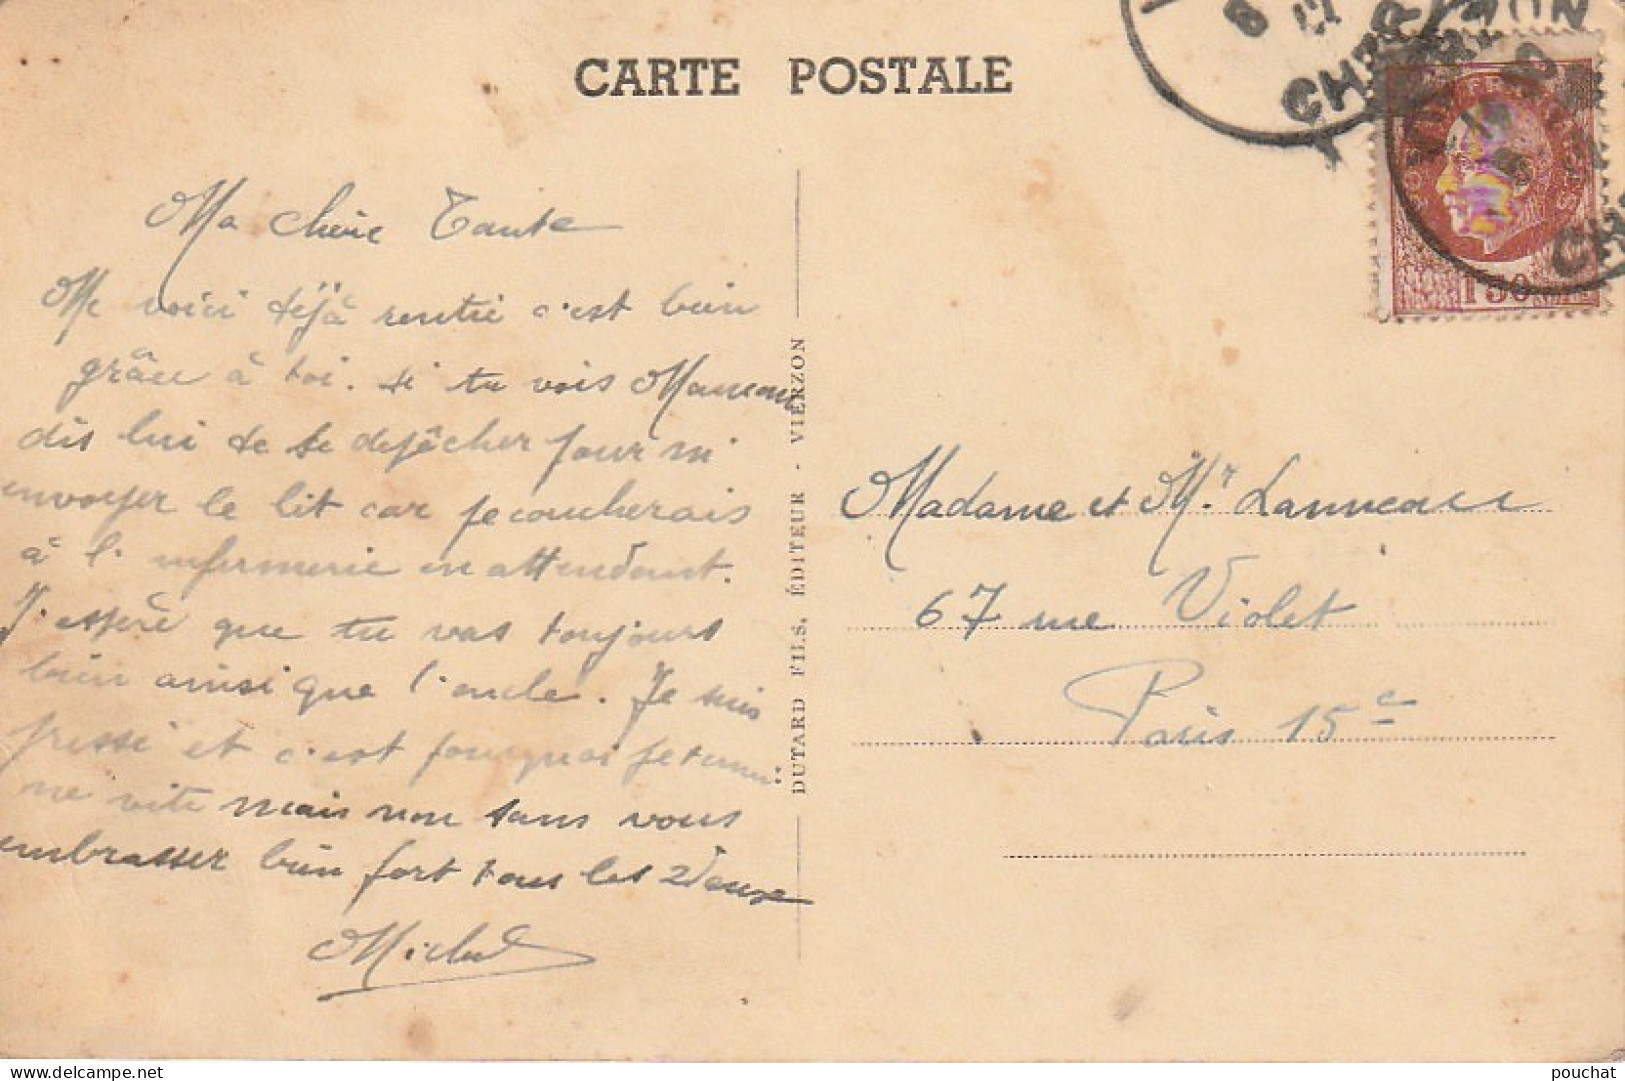 CARTE POSTALE
Ma chère Tante
Me voici déjà rentré c'est bien
grâce à toi. si tu vois Maman
dis lui de se depêcher pour m
envoyer le lit car je coucherais
à l'infirmerie en attendant.
J'espère que tu vas toujours
bien ainsi que l'oncle. Je suis
pressé et c'est pourquoi je termi:
ne vite mais non sans vous
embrasser bien fort tous les 2 deux
Michel
DUTARD FILS, ÉDITEUR - VIERZON
Madame et Mr. Lanneau
67 rue Violet
Paris 15e
POSTES FRANÇAISES
1F50
CHER
pouchat